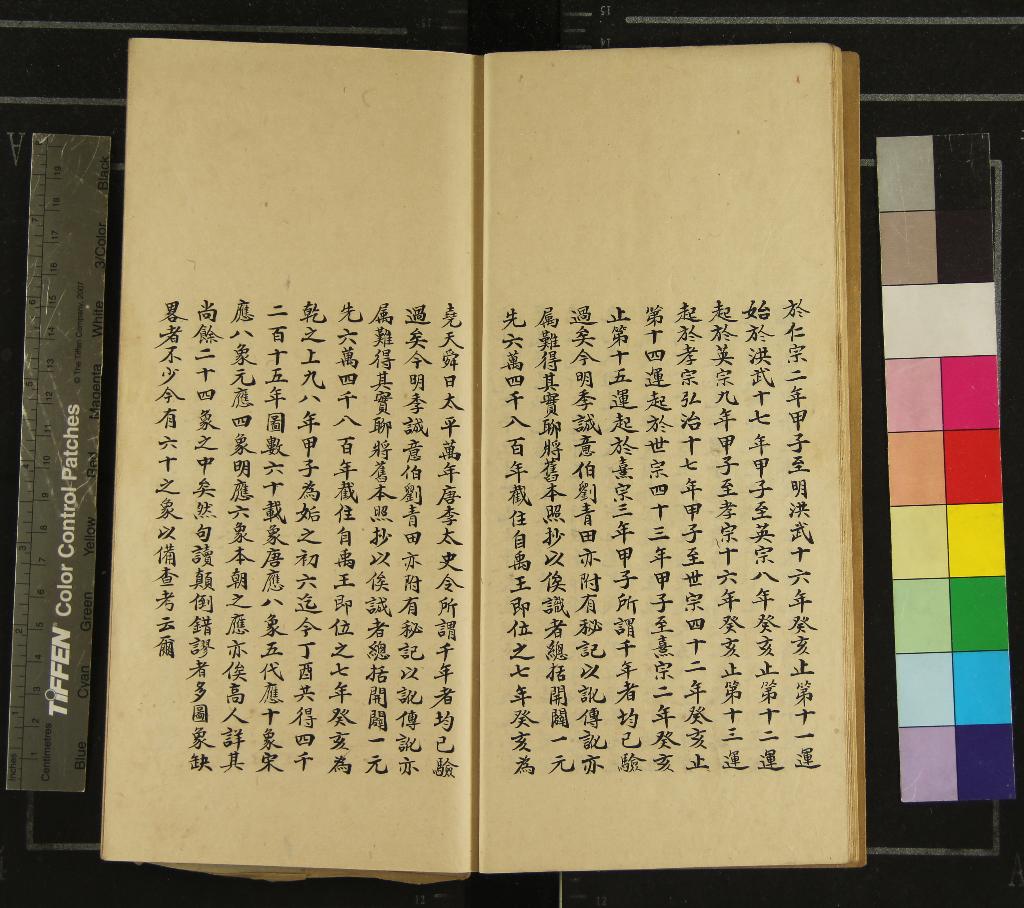 於仁宗二年甲子至明洪武十六年癸亥止第十一運
始於洪武十七年甲子至英宗八年癸亥止第十二運
起於英宗九年甲子至孝宗十六年癸亥止第十三運
起於孝宗弘治十七年甲子至世宗四十二年癸亥止
第十四運起於世宗四十三年甲子至熹宗二年癸亥
止第十五運起於熹宗三年甲子所謂千年者均已驗
過矣今明季誠意伯劉青田亦附有秘記以訛傳訛亦
属難得其實聊將舊本照抄以俟識者總括開闢一元
先六萬四千八百年截住自禹王即位之七年癸亥為
堯天舜日太平萬年唐李太史令所謂千年者均已驗
過矣今明季誠意伯劉青田亦附有秘記以訛傳訛亦
属難得其實聊將舊本照抄以俟誠者總括開闢一元
先六萬四千八百年截住自禹王即位之七年癸亥為
乾之上九八年甲子為姤之初六迄今丁酉共得四千
二百十五年圖數六十載象唐應八象五代應十象宋
應八象元應四象明應六象本朝之應亦俟高人詳其
尚餘二十四象之中矣然句讀顛倒錯謬者多圖象缺
畧者不少今有六十之象以備查考云爾
Inches
Centimetres
TIFFEN Color Control Patches
© The Tiffen Company, 2007
Blue
Cyan
Green
Yellow
Red
Magenta
White
3/Color
Black